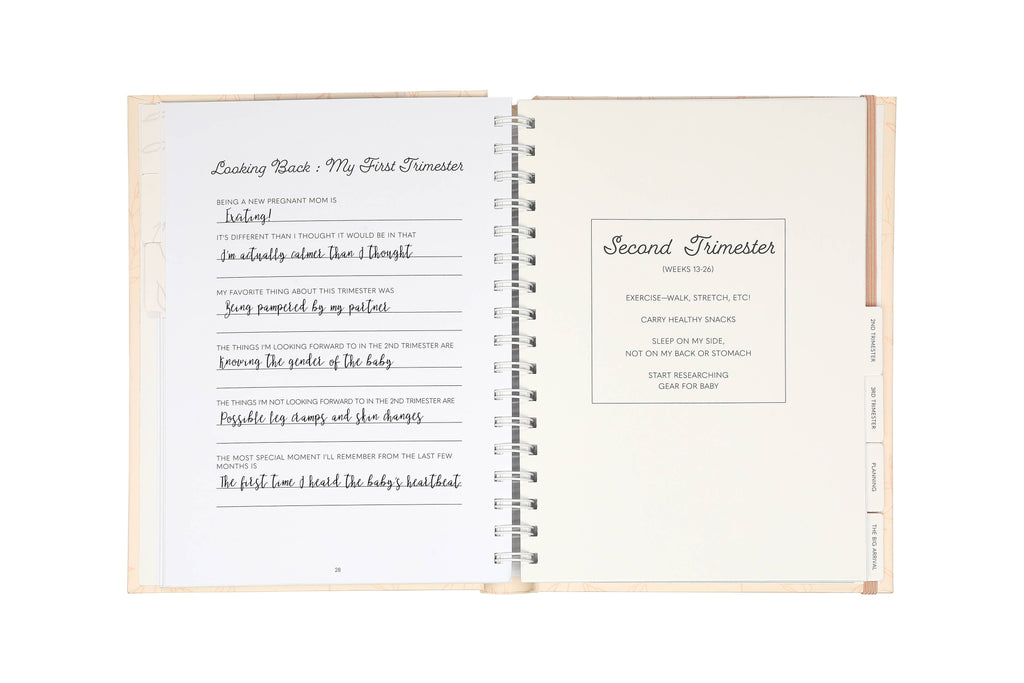 Looking Back : My First Trimester
BEING A NEW PREGNANT MOM IS
Exciting!
IT'S DIFFERENT THAN I THOUGHT IT WOULD BE IN THAT
I'm actually calmer than I thought
MY FAVORITE THING ABOUT THIS TRIMESTER WAS
Being pampered by my partner
THE THINGS I'M LOOKING FORWARD TO IN THE 2ND TRIMESTER ARE
Knowing the gender of the baby
THE THINGS I'M NOT LOOKING FORWARD TO IN THE 2ND TRIMESTER ARE
Possible leg cramps and skin changes
THE MOST SPECIAL MOMENT I'LL REMEMBER FROM THE LAST FEW
MONTHS IS
The first time I heard the baby's heartbeat.
28
Second Trimester
(WEEKS 13-26)
EXERCISE—WALK, STRETCH, ETC!
CARRY HEALTHY SNACKS
SLEEP ON MY SIDE,
NOT ON MY BACK OR STOMACH
START RESEARCHING
GEAR FOR BABY
2ND TRIMESTER
3RD TRIMESTER
PLANNING
THE BIG ARRIVAL